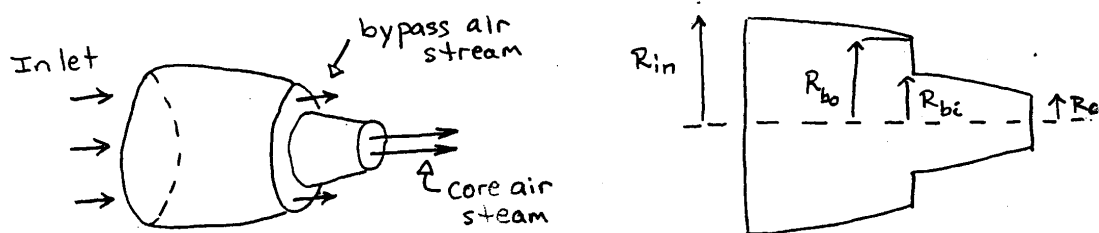 Inlet
bypass air
stream
core air
steam
Rin
Rbo
Rbi
Re